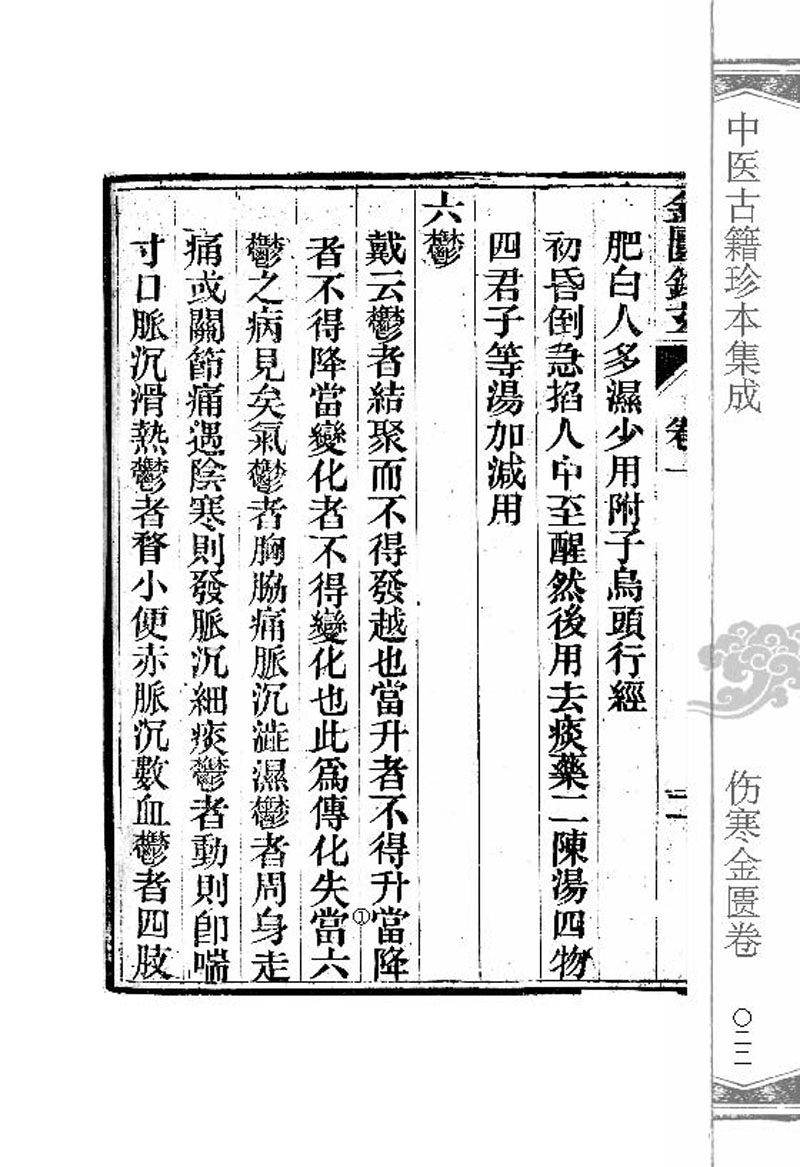 中医古籍珍本集成
伤寒金匮卷
〇二二
金匱鉤玄 卷一 二
肥白人多濕少用附子烏頭行經
初昏倒急掐人中至醒然後用去痰藥二陳湯四物
四君子等湯加減用
六鬱
戴云鬱者結聚而不得發越也當升者不得升當降
者不得降當變化者不得變化也此爲傳化失當①六
鬱之病見矣氣鬱者胸脇痛脈沉澁濕鬱者周身走
痛或關節痛遇陰寒則發脈沉細痰鬱者動則卽喘
寸口脈沉滑熱鬱者瞀小便赤脈沉數血鬱者四肢